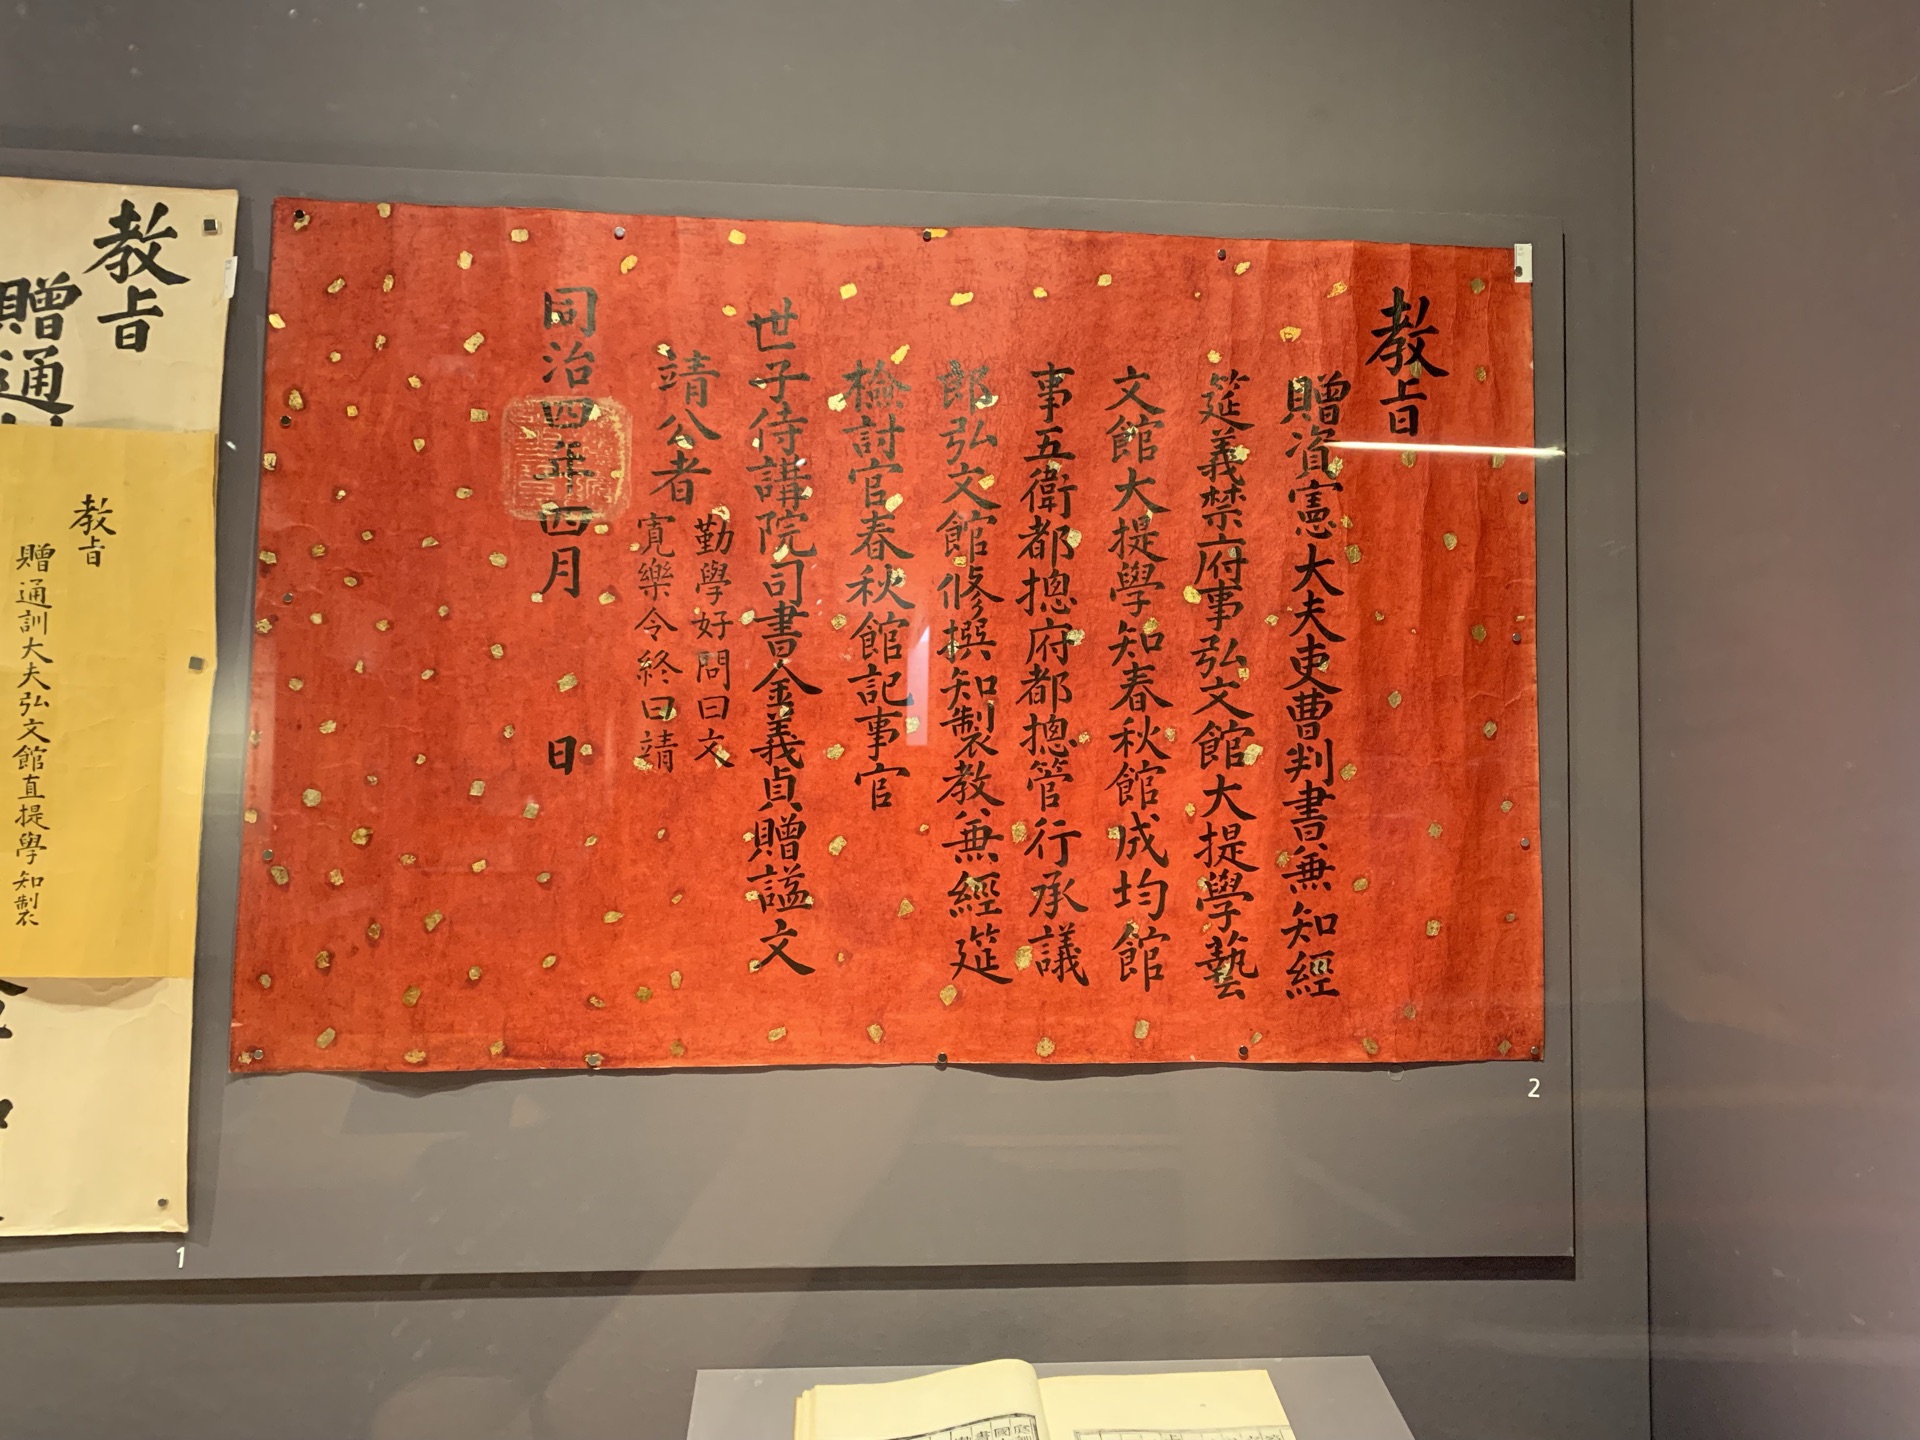 教旨
贈資憲大夫吏曹判書兼知經
筵義禁府事弘文館大提學藝
文館大提學知春秋館成均館
事五衛都摠府都摠管行承議
郎弘文館修撰知製敎兼經筵
檢討官春秋館記事官
世子侍講院司書金義貞贈諡文
靖公者
勤學好問曰文
寬樂令終曰靖
同治四年四月 日
2
教旨
贈通
教旨
贈通訓大夫弘文館直提學知製
1